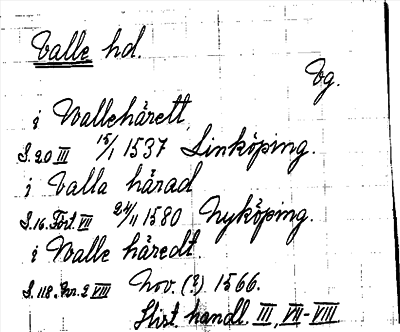 Valle hd.
Vg.
i Wallehärett,
S. 20 III 15/1 1537 Linköping.
i Valla härad
S. 16. Fört. VII 24/11 1580 Nyköping.
i Walle häredt.
S. 118. Nr. 2 VIII Nov. (?) 1566.
Hist. handl. III, VII-VIII